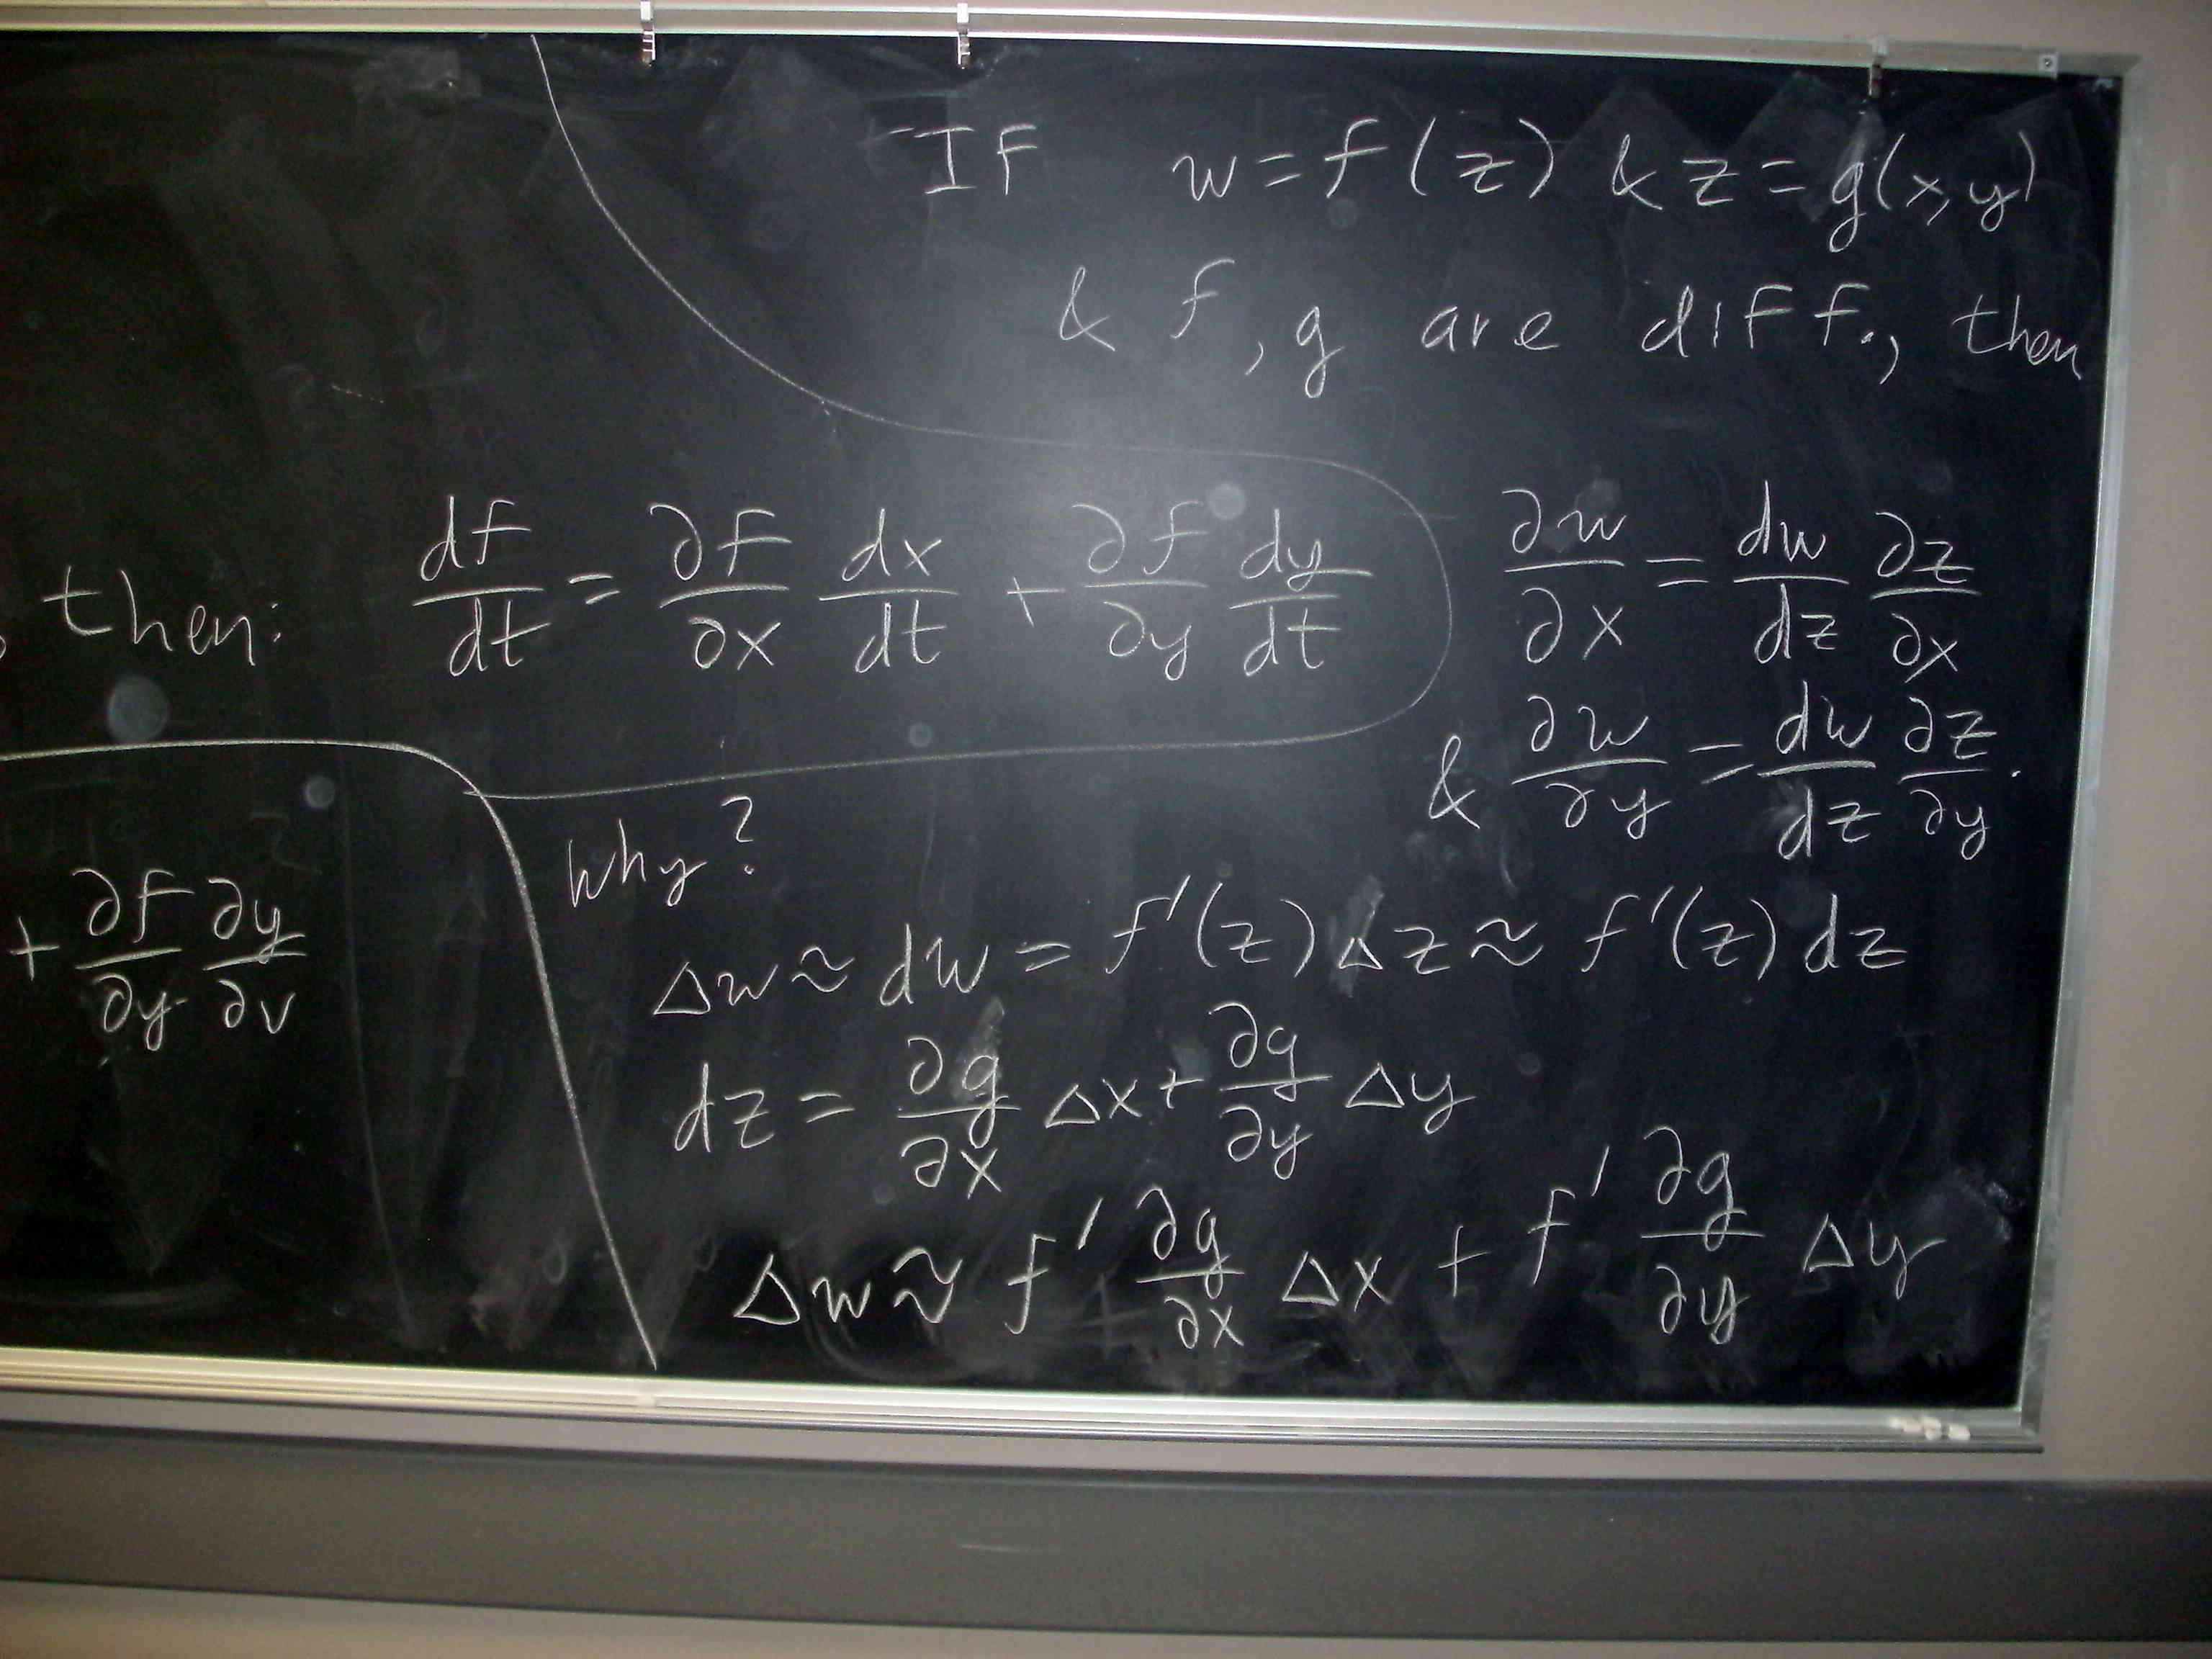 If w = f(z) & z = g(x,y)
& f, g are diff., then
∂w/∂x = dw/dz ∂z/∂x
& ∂w/∂y = dw/dz ∂z/∂y.
then: df/dt = ∂f/∂x dx/dt + ∂f/∂y dy/dt
+ ∂f/∂y ∂y/∂v
Why?
Δw ≈ dw = f'(z) Δz ≈ f'(z) dz
dz = ∂g/∂x Δx + ∂g/∂y Δy
Δw ≈ f' ∂g/∂x Δx + f' ∂g/∂y Δy